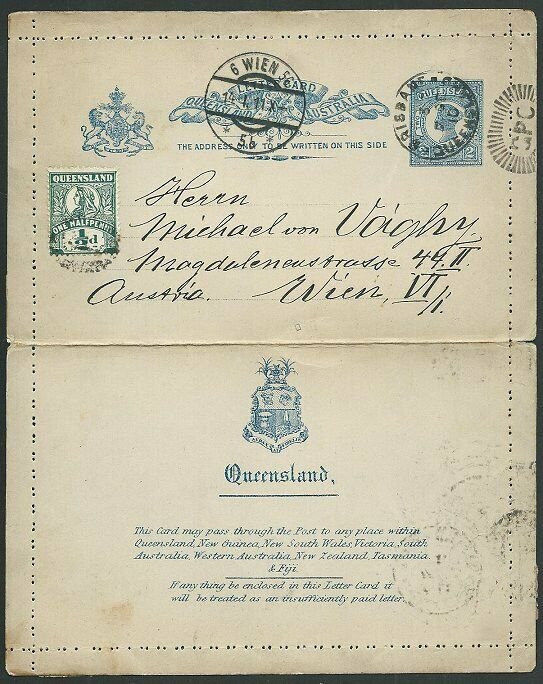 6 WIEN
LETTER CARD
QUEENSLAND AUSTRALIA
THE ADDRESS ONLY TO BE WRITTEN ON THIS SIDE
BRISBANE
QUEENSLAND
GPO
QUEENSLAND
ONE HALFPENNY
½d
Herrn
Michael von Vághy
Magdalenenstrasse 49. II.
Austria. Wien, VI/1.
Queensland,
This Card may pass through the Post to any place within
Queensland, New Guinea, New South Wales, Victoria, South
Australia, Western Australia, New Zealand, Tasmania
& Fiji.
If any thing be enclosed in this Letter Card it
will be treated as an insufficiently paid letter.